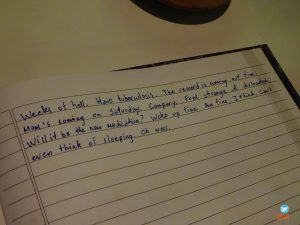 Weeks of hell. Have tuberculosis. The record is coming out fine.
Mom's coming on Saturday. Company. Feel strange & dislocated.
Will it be the new medication? Woke up fine. Am fine, I think. Can't
even think of sleeping. Oh well.